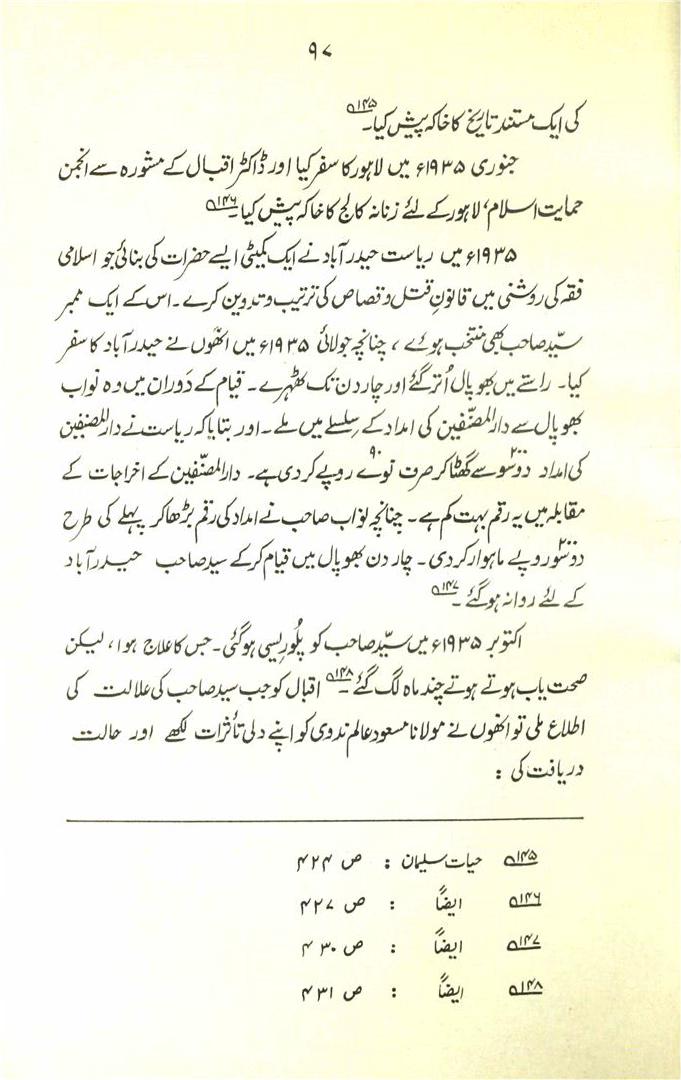 ۹۷
کی ایک مستند تاریخ کا خاکہ پیش کیا۔ ۱۴۵؎
جنوری ۱۹۳۵ء میں لاہور کا سفر کیا اور ڈاکٹر اقبال کے مشورہ سے انجمن
حمایت اسلام، لاہور کے لئے زنانہ کالج کا خاکہ پیش کیا۔ ۱۴۶؎
۱۹۳۵ء میں ریاست حیدرآباد نے ایک کمیٹی ایسے حضرات کی بنائی جو اسلامی
فقہ کی روشنی میں قانونِ قتل و قصاص کی ترتیب و تدوین کرے۔ اس کے ایک ممبر
سیّد صاحب بھی منتخب ہوئے، چنانچہ جولائی ۱۹۳۵ء میں انھوں نے حیدرآباد کا سفر
کیا۔ راستے میں بھوپال اُتر گئے اور چار دن تک ٹھہرے۔ قیام کے دَوران میں وہ نواب
بھوپال سے دار المصنّفین کی امداد کے سِلسلے میں ملے۔ اور بتایا کہ ریاست نے دار المصنفین
کی امداد دو سَو ۲۰۰ سے گھٹا کر صرف نوّے ۹۰ روپے کر دی ہے۔ دار المصنّفین کے اخراجات کے
مقابلہ میں یہ رقم بہت کم ہے۔ چنانچہ نواب صاحب نے امداد کی رقم بڑھا کر پہلے کی طرح
دو سَو ۲۰۰ روپے ماہوار کر دی۔ چار دن بھوپال میں قیام کر کے سید صاحب حیدرآباد
کے لئے روانہ ہو گئے۔ ۱۴۷؎
اکتوبر ۱۹۳۵ء میں سیّد صاحب کو پلُوریسی ہو گئی۔ جس کا علاج ہوا، لیکن
صحت یاب ہوتے ہوتے چند ماہ لگ گئے۔ ۱۴۸؎ اقبال کو جب سید صاحب کی علالت کی
اطلاع ملی تو انھوں نے مولانا مسعود عالم ندوی کو اپنے دلی تأثرات لکھے اور حالت
دریافت کی :
۱۴۵؎ حیات سلیمان : ص ۴۲۴
۱۴۶؎ ایضاً : ص ۴۲۷
۱۴۷؎ ایضاً : ص ۴۳۰
۱۴۸؎ ایضاً : ص ۴۳۱